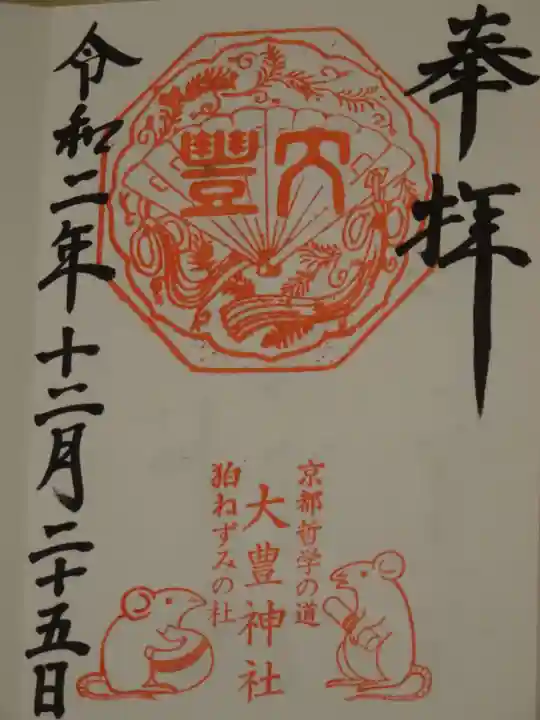 奉拝
大豐
京都哲学の道
大豊神社
狛ねずみの社
令和二年十二月二十五日